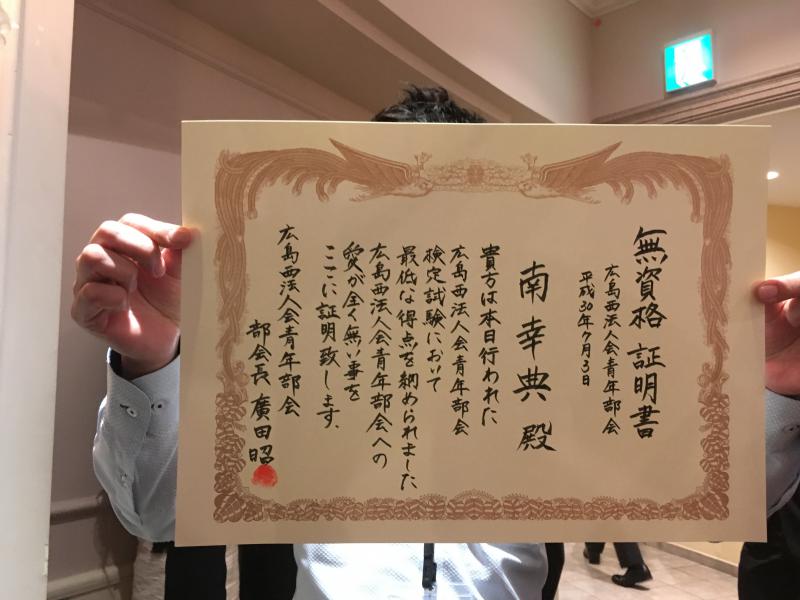 無資格 証明書
広島西法人会青年部会
平成30年7月3日
南 幸典 殿
貴方は本日行われた
広島西法人会青年部会
検定試験において
最低な得点を納められました
広島西法人会青年部会への
愛が全く無い事を
ここに証明致します。
広島西法人会青年部会
部会長 廣田 昭